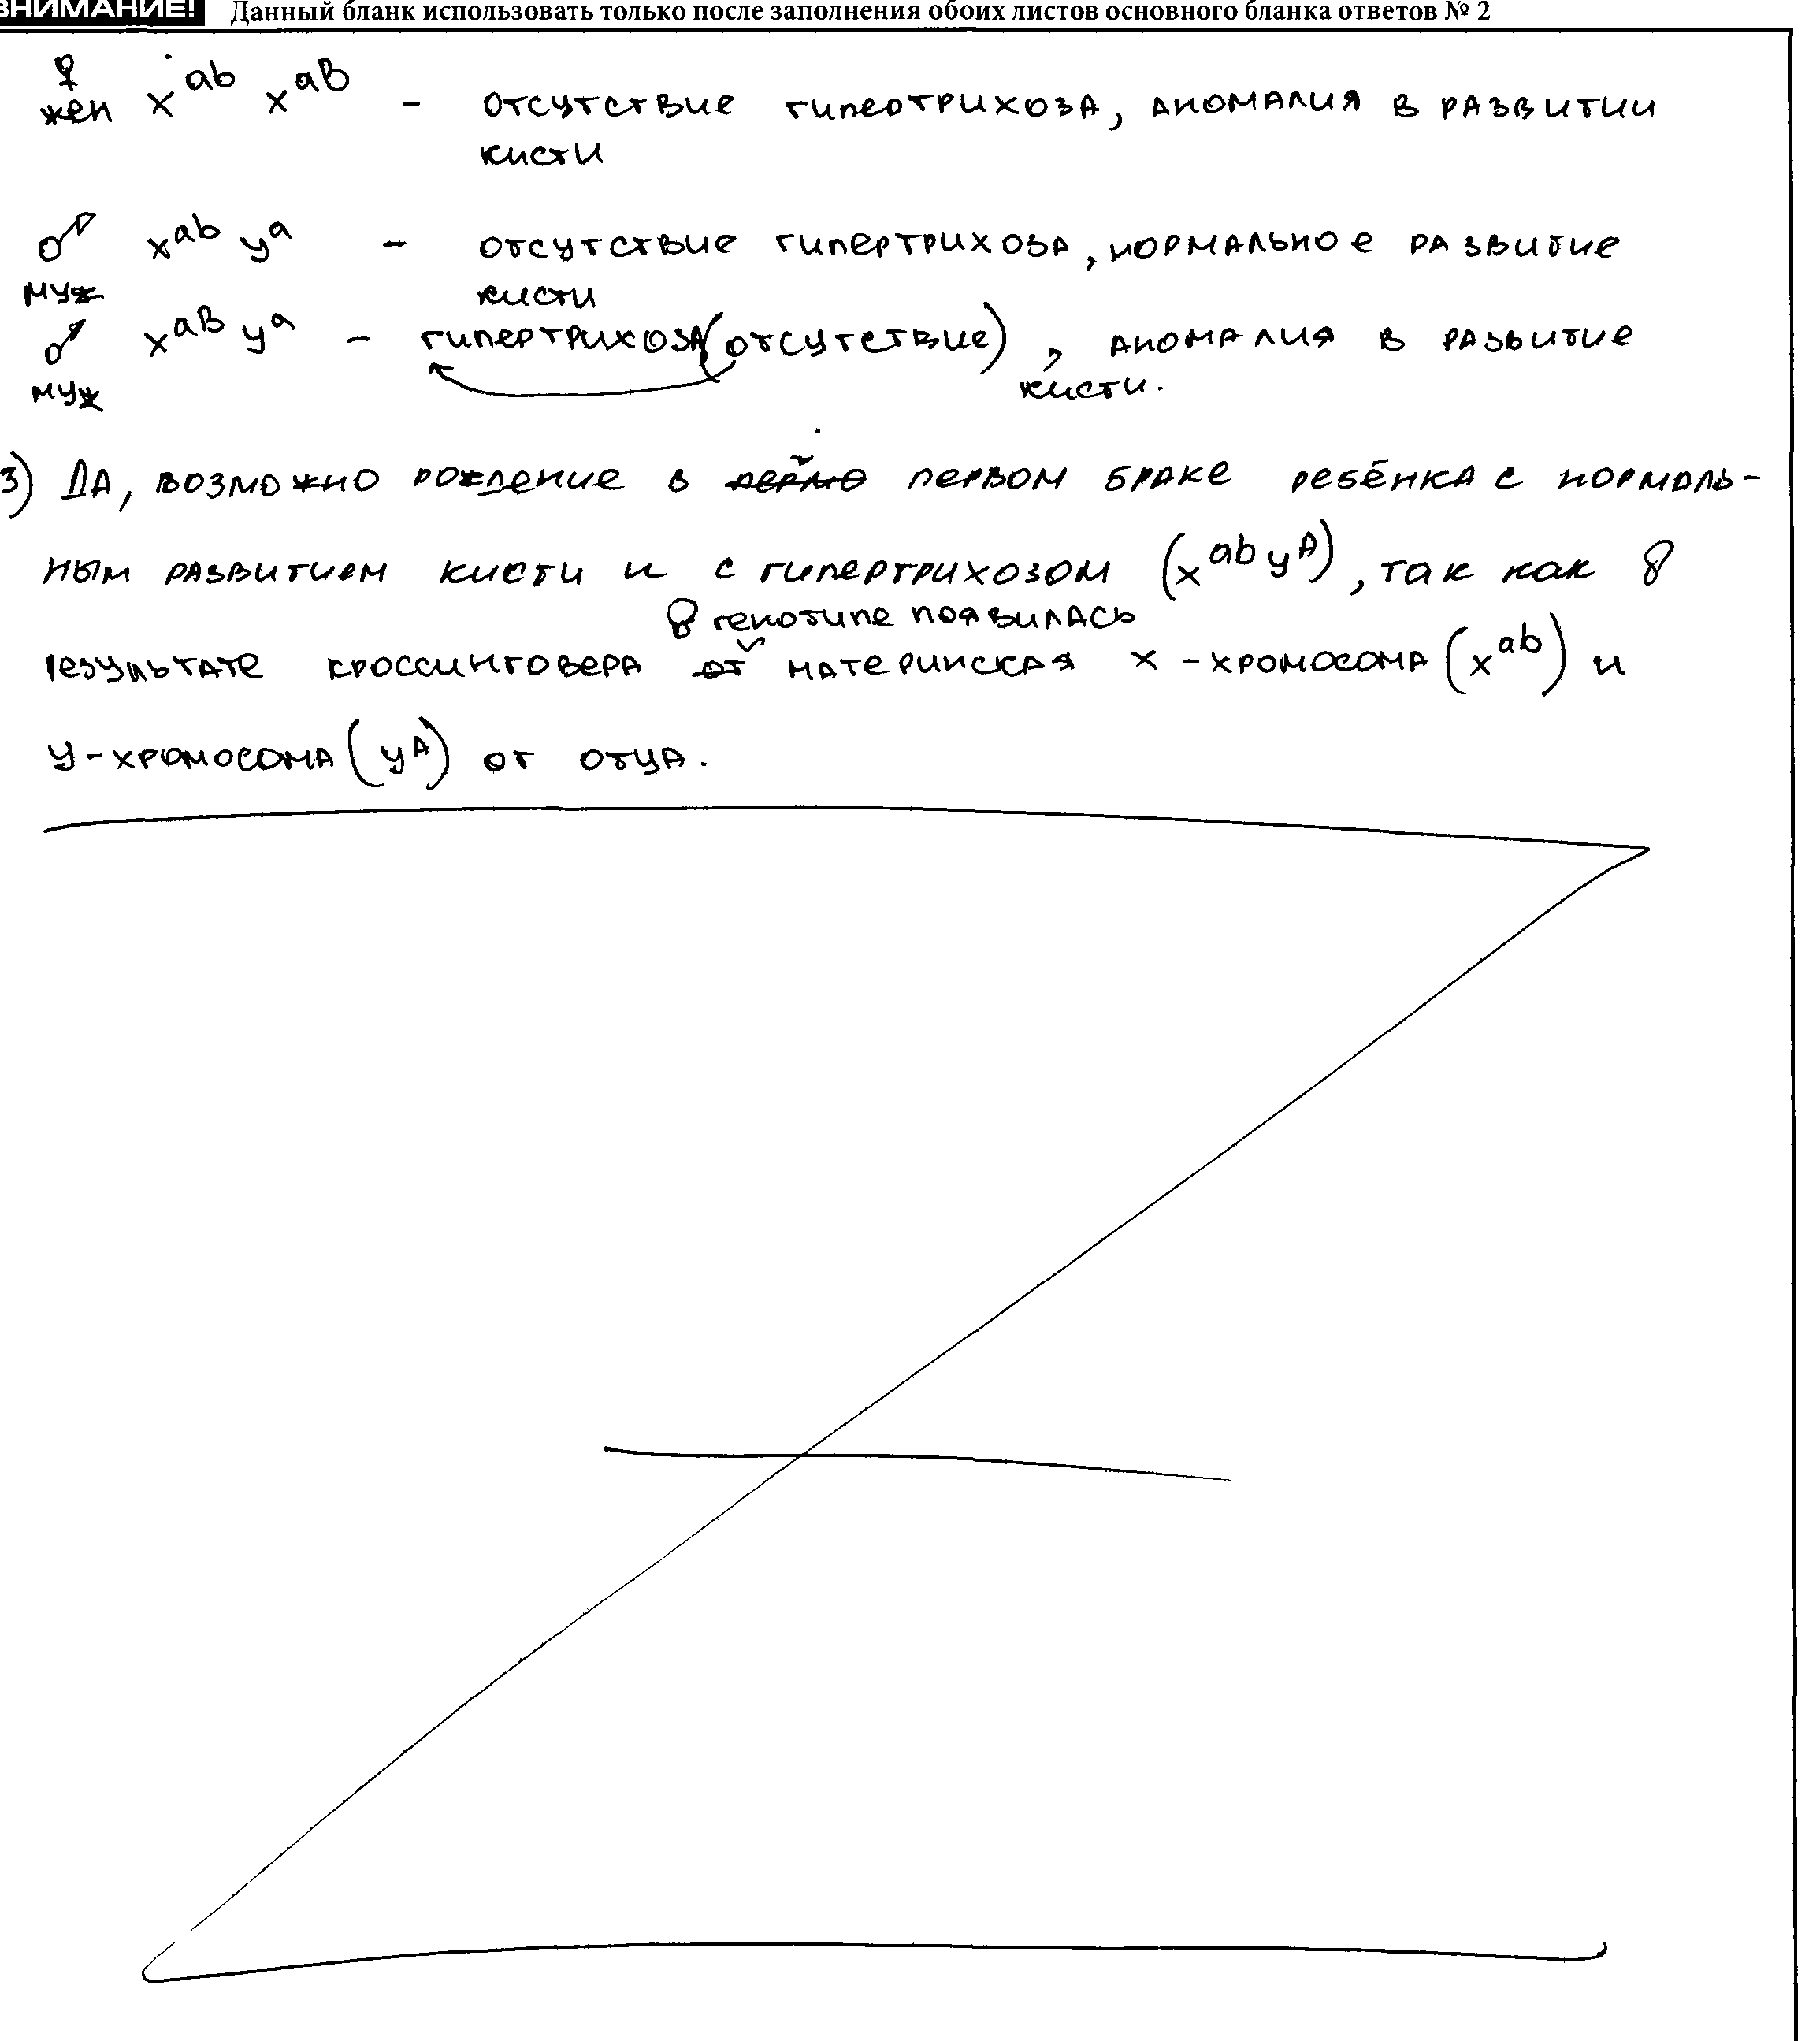 ВНИМАНИЕ! Данный бланк использовать только после заполнения обоих листов основного бланка ответов № 2
♀
жен x^ab x^aB - отсутствие гипеотрихоза, аномалия в развитии
кисти
♂ x^ab y^a - отсутствие гипертрихоза, нормальное развитие
муж кисти
♂ x^aB y^a - гипертрихоза (отсутствие), аномалия в развитие
муж кисти.
3) Да, возможно рождение в первом браке ребёнка с нормаль-
ным развитием кисти и с гипертрихозом (x^ab y^A), так как в
в генотипе появилась
результате кроссинговера от материнская x-хромосома (x^ab) и
y-хромосома (y^A) от отца.